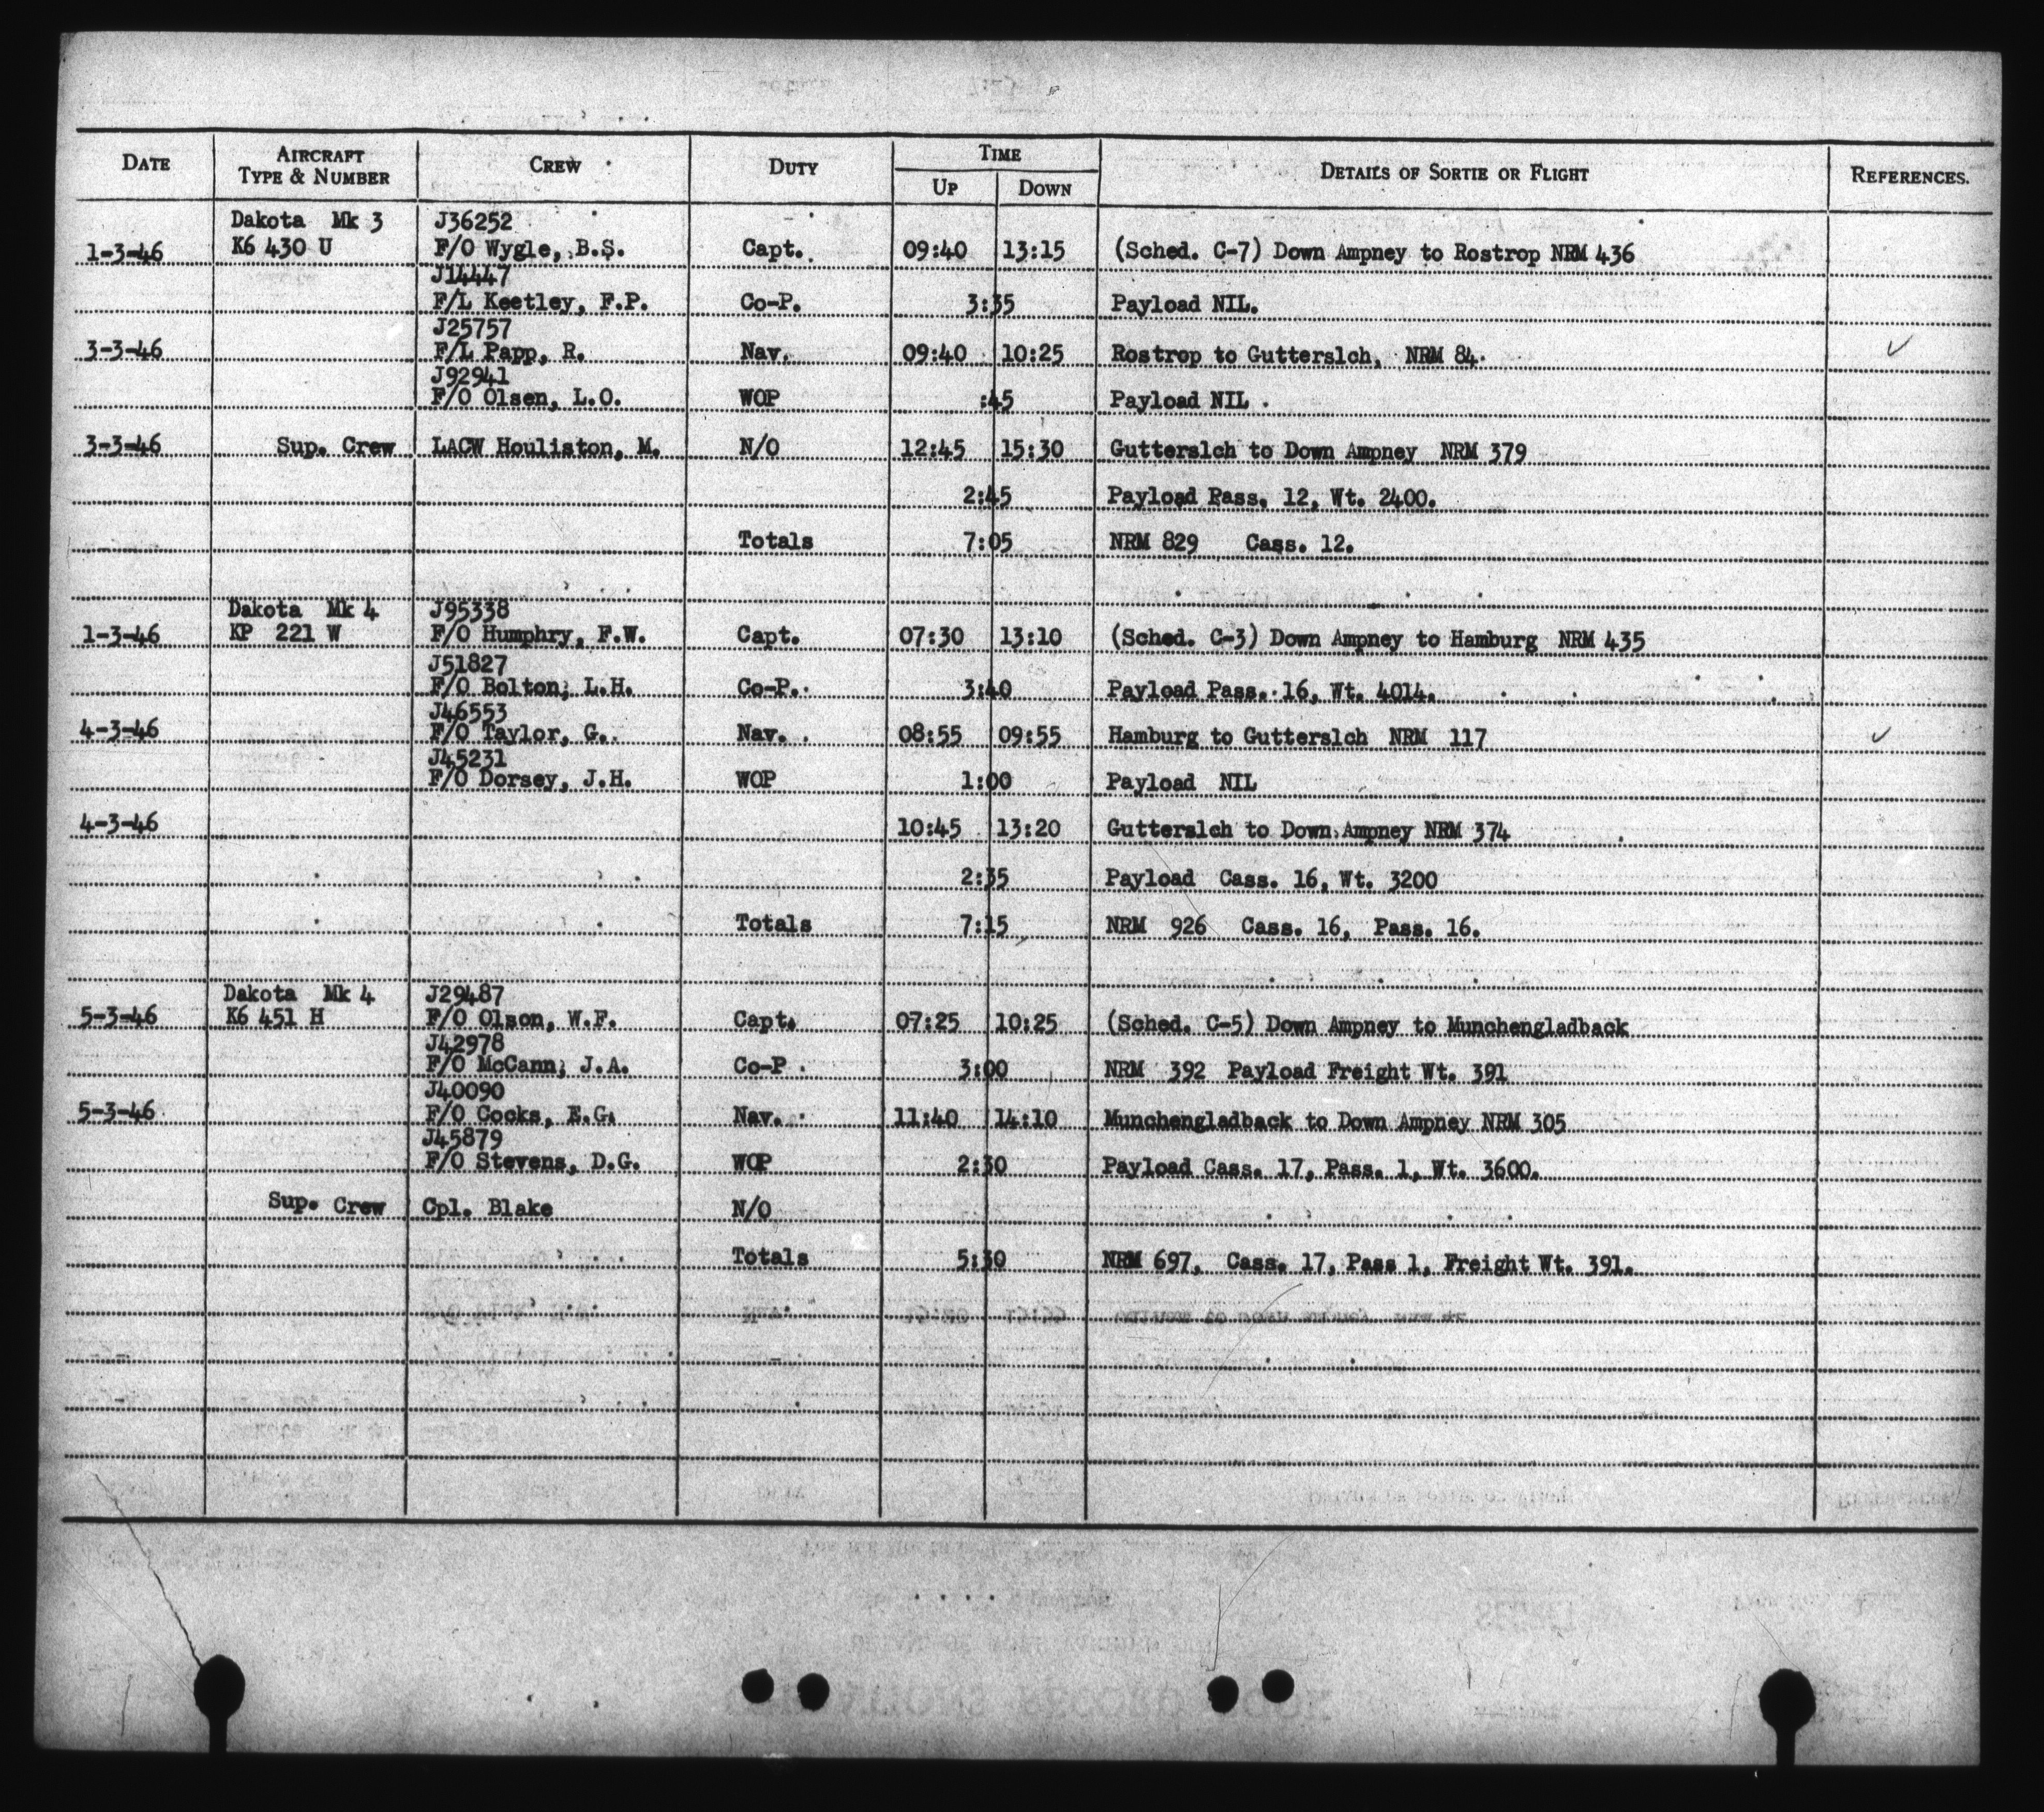 DATE AIRCRAFT TYPE & NUMBER CREW DUTY TIME UP DOWN DETAILS OF SORTIE OR FLIGHT REFERENCES.
Dakota Mk 3 J36252
1-3-46 K6 430 U F/O Wygle, B.S. Capt. 09:40 13:15 (Sched. C-7) Down Ampney to Rostrop NRM 436
J14447
F/L Keetley, F.P. Co-P. 3:35 Payload NIL.
J25757
3-3-46 F/L Papp, R. Nav. 09:40 10:25 Rostrop to Gutterslch, NRM 84.
J92941
F/O Olsen, L.O. WOP :45 Payload NIL.
3-3-46 Sup. Crew LACW Houliston, M. N/O 12:45 15:30 Gutterslch to Down Ampney NRM 379
2:45 Payload Pass. 12, Wt. 2400.
Totals 7:05 NRM 829 Cass. 12.
Dakota Mk 4 J95338
1-3-46 KP 221 W F/O Humphry, F.W. Capt. 07:30 13:10 (Sched. C-3) Down Ampney to Hamburg NRM 435
J51827
F/O Bolton, L.H. Co-P. 3:40 Payload Pass. 16, Wt. 4014.
J46553
4-3-46 F/O Taylor, G. Nav. 08:55 09:55 Hamburg to Gutterslch NRM 117
J45231
F/O Dorsey, J.H. WOP 1:00 Payload NIL
4-3-46 10:45 13:20 Gutterslch to Down Ampney NRM 374
2:35 Payload Cass. 16, Wt. 3200
Totals 7:15 NRM 926 Cass. 16, Pass. 16.
Dakota Mk 4 J29487
5-3-46 K6 451 H F/O Olson, W.F. Capt. 07:25 10:25 (Sched. C-5) Down Ampney to Munchengladback
J42978
F/O McCann, J.A. Co-P. 3:00 NRM 392 Payload Freight Wt. 391
J40090
5-3-46 F/O Cocks, E.G. Nav. 11:40 14:10 Munchengladback to Down Ampney NRM 305
J45879
F/O Stevens, D.G. WOP 2:30 Payload Cass. 17, Pass. 1, Wt. 3600.
Sup. Crew Cpl. Blake N/O
Totals 5:30 NRM 697, Cass. 17, Pass 1, Freight Wt. 391.